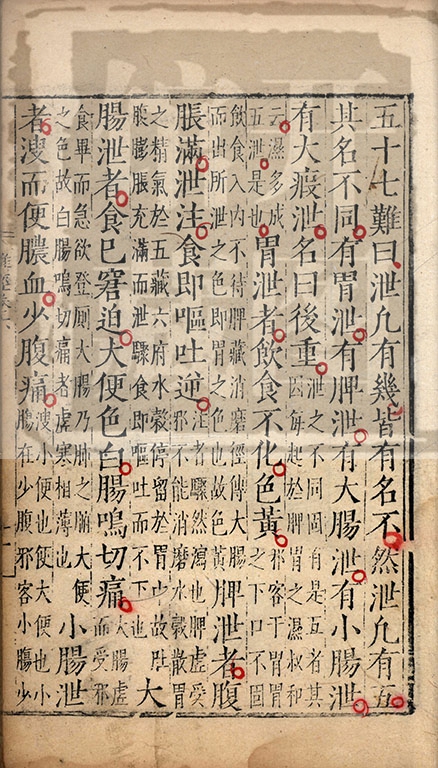 五十七難曰泄凡有幾皆有名不然泄凡有五
其名不同有胃泄有脾泄有大腸泄有小腸泄
有大瘕泄名曰後重
泄之不同固有是五者其
因每起於脾胃之濕叔和
云濕多成
五泄是也
胃泄者飲食不化色黃
邪客于胃胃
之下口不固
飲食入内不待脾藏消磨徑傳大腸
而出所泄之色即胃之色也故色黃
脾泄者腹
脹滿泄注食即嘔吐逆
注者驟然瀉也脾虛受
邪不能消磨水穀散胃
之精氣於五藏六府水穀停留於胃中故肚
腹膨脹充滿而泄驟食即嘔吐而不下也
大
腸泄者食已窘迫大便色白腸鳴切痛
大腸虛
而受邪
食畢而急欲登厠大腸乃肺之腑大便
之色故白腸鳴切痛者虛寒相薄也
小腸泄
者溲而便膿血少腹痛
溲小便也便大便也小
腸在少腹邪客小腸少